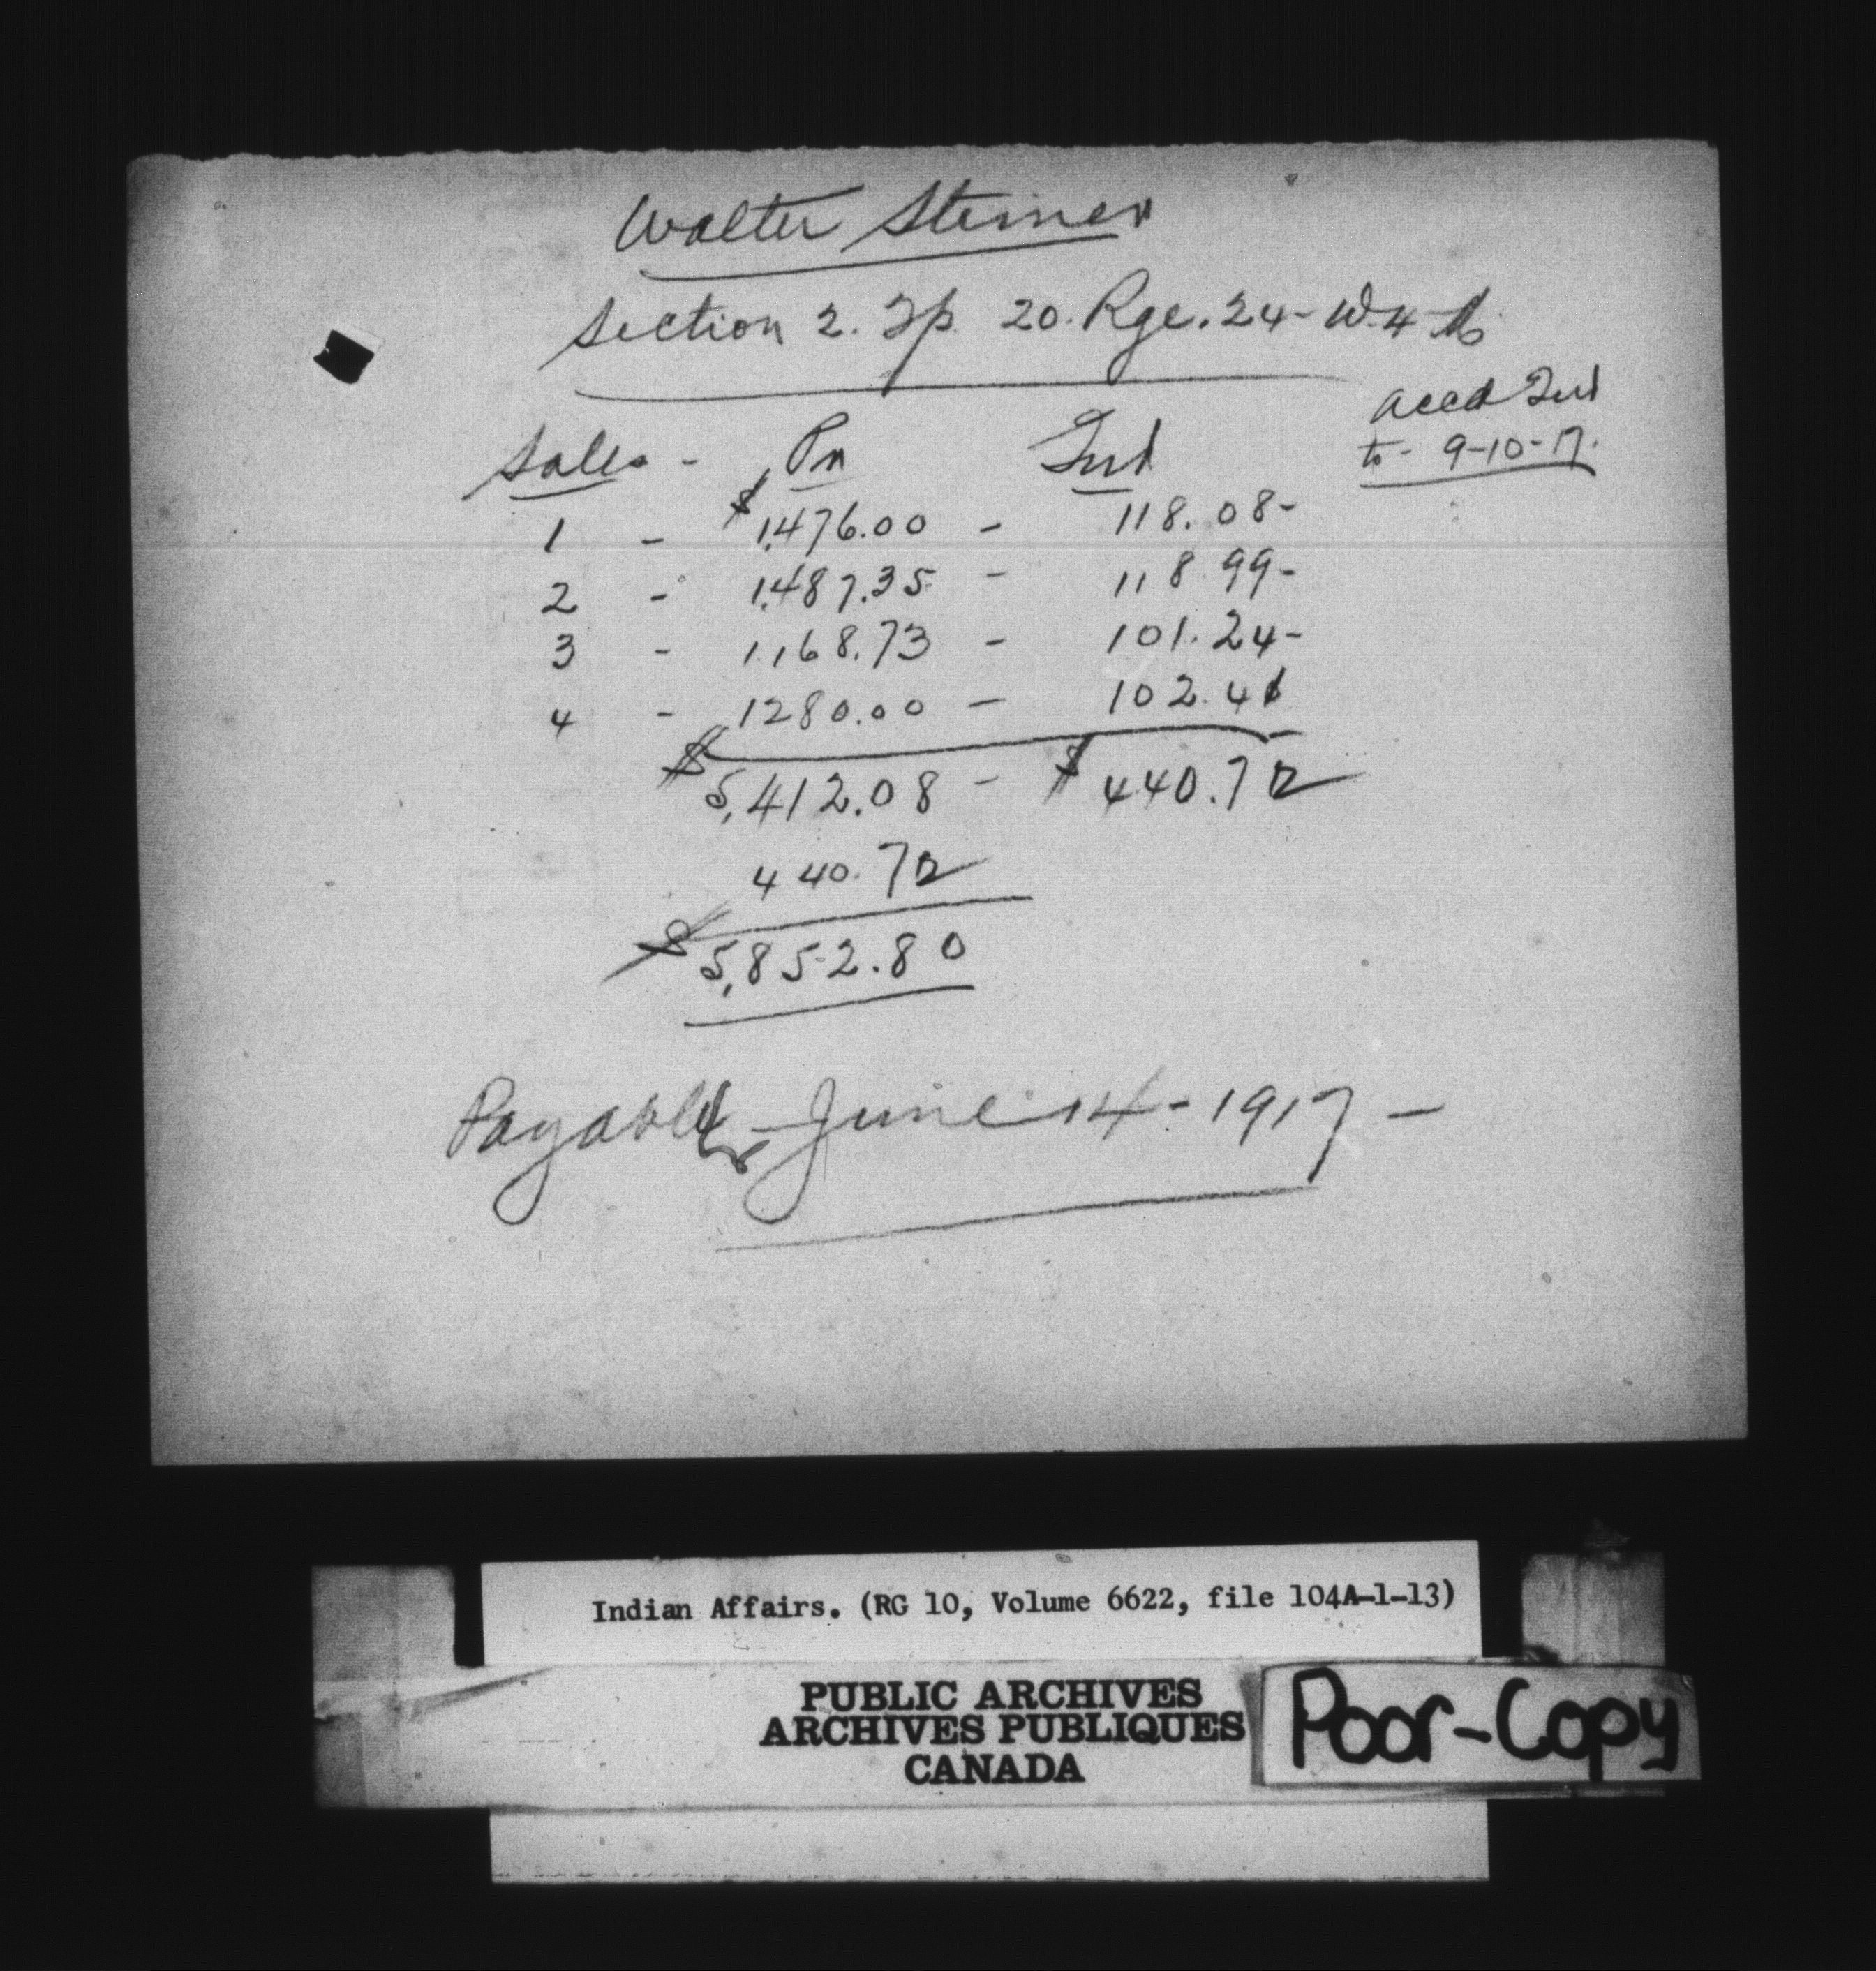 Walter Steiner
Section 2. Tp. 20. Rge. 24- W-4-M
Accd Int
to- 9-10-17.
Sales - Pn Int
1 - $1,476.00 - 118.08-
2 - 1,487.35 - 118.99-
3 - 1,168.73 - 101.24-
4 - 1280.00 - 102.41
$5,412.08 - $440.72
440.72
$5,852.80
Payable - June 14 - 1917 -
Indian Affairs. (RG 10, Volume 6622, file 104A-1-13)
PUBLIC ARCHIVES
ARCHIVES PUBLIQUES
CANADA
Poor-Copy